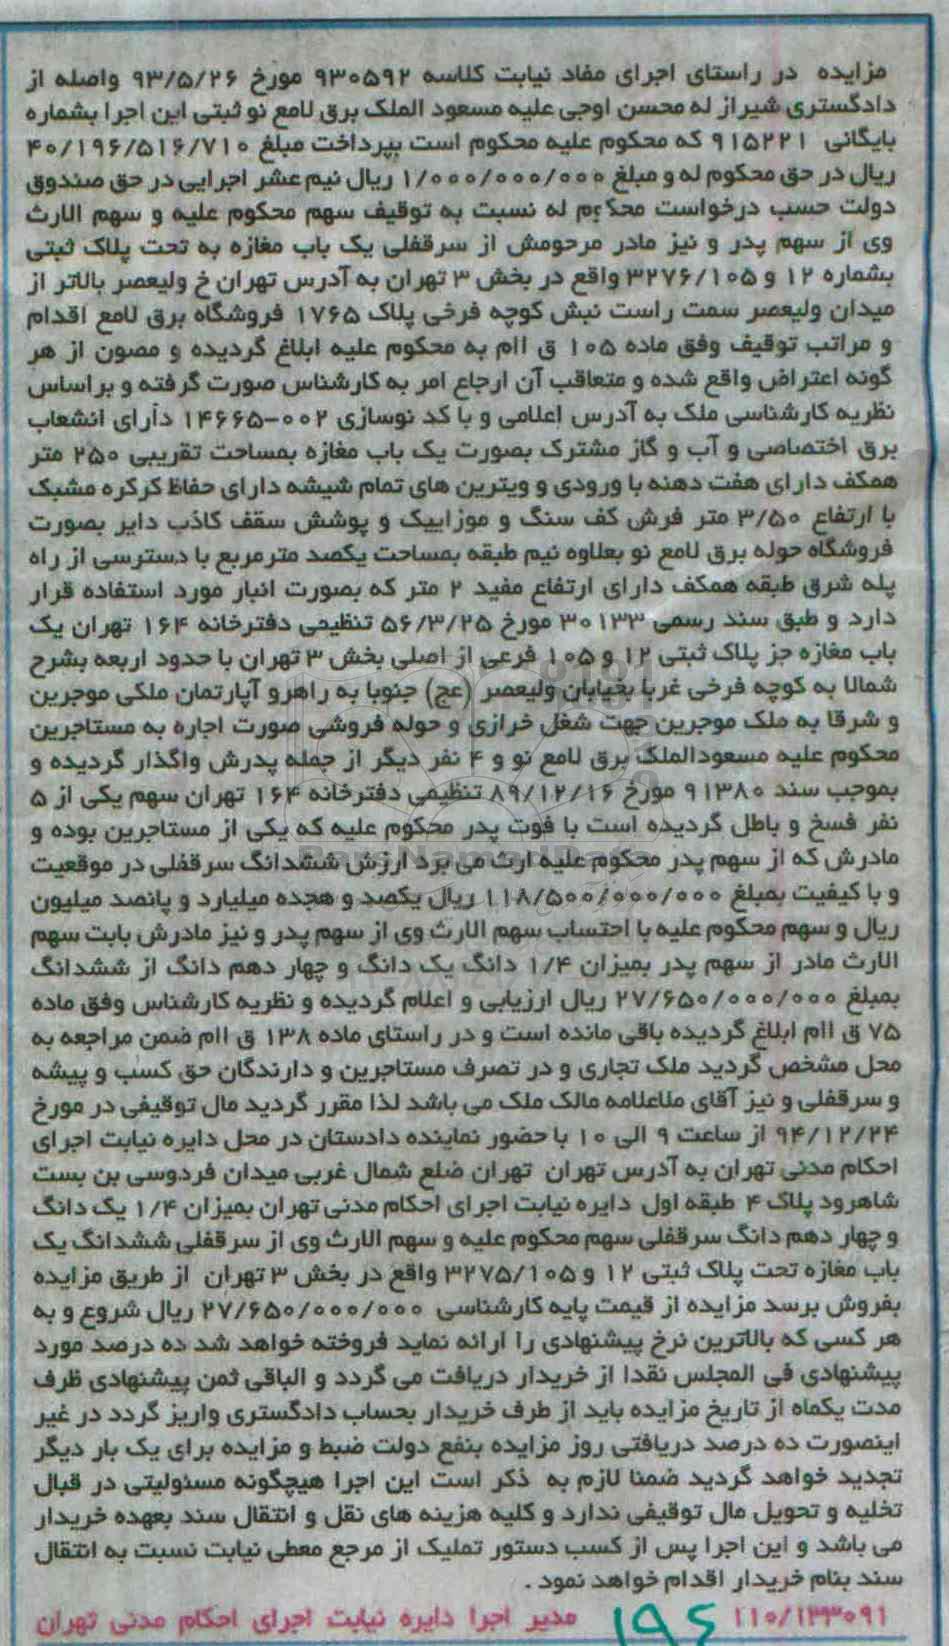 مزایده در راستای اجرای مفاد نیابت کلاسه ۹۳۰۵۹۲ مورخ ۹۳/۵/۲۶ واصله از
دادگستری شیراز له محسن اوجی علیه مسعود الملک برق لامع نو ثبتی این اجرا بشماره
بایگانی ۹۱۵۲۲۱ که محکوم علیه محکوم است بپرداخت مبلغ ۴۰/۱۹۶/۵۱۶/۷۱۰
ریال در حق محکوم له و مبلغ ۱/۰۰۰/۰۰۰/۰۰۰ ریال نیم عشر اجرایی در حق صندوق
دولت حسب درخواست محکوم له نسبت به توقیف سهم محکوم علیه و سهم الارث
وی از سهم پدر و نیز مادر مرحومش از سرقفلی یک باب مغازه به تحت پلاک ثبتی
بشماره ۱۲ و ۳۲۷۶/۱۰۵ واقع در بخش ۳ تهران به آدرس تهران خ ولیعصر بالاتر از
میدان ولیعصر سمت راست نبش کوچه فرخی پلاک ۱۷۶۵ فروشگاه برق لامع اقدام
و مراتب توقیف وفق ماده ۱۰۵ ق اام به محکوم علیه ابلاغ گردیده و مصون از هر
گونه اعتراض واقع شده و متعاقب آن ارجاع امر به کارشناس صورت گرفته و بر اساس
نظریه کارشناسی ملک به آدرس اعلامی و با کد نوسازی ۰۰۲-۱۴۶۶۵ دارای انشعاب
برق اختصاصی و آب و گاز مشترک بصورت یک باب مغازه بمساحت تقریبی ۲۵۰ متر
همکف دارای هفت دهنه با ورودی و ویترین های تمام شیشه دارای حفاظ کرکره مشبک
با ارتفاع ۳/۵۰ متر فرش کف سنگ و موزاییک و پوشش سقف کاذب دایر بصورت
فروشگاه حوله برق لامع نو بعلاوه نیم طبقه بمساحت یکصد مترمربع با دسترسی از راه
پله شرق طبقه همکف دارای ارتفاع مفید ۲ متر که بصورت انبار مورد استفاده قرار
دارد و طبق سند رسمی ۳۰۱۳۳ مورخ ۵۶/۳/۲۵ تنظیمی دفترخانه ۱۶۴ تهران یک
باب مغازه جز پلاک ثبتی ۱۲ و ۱۰۵ فرعی از اصلی بخش ۳ تهران با حدود اربعه بشرح
شمالا به کوچه فرخی غربا بخیابان ولیعصر (عج) جنوبا به راهرو آپارتمان ملکی موجرین
و شرقا به ملک موجرین جهت شغل خرازی و حوله فروشی صورت اجاره به مستاجرین
محکوم علیه مسعودالملک برق لامع نو و ۴ نفر دیگر از جمله پدرش واگذار گردیده و
بموجب سند ۹۱۳۸۰ مورخ ۸۹/۱۲/۱۶ تنظیمی دفترخانه ۱۶۴ تهران سهم یکی از ۵
نفر فسخ و باطل گردیده است با فوت پدر محکوم علیه که یکی از مستاجرین بوده و
مادرش که از سهم پدر محکوم علیه ارث می برد ارزش ششدانگ سرقفلی در موقعیت
و با کیفیت بمبلغ ۱۱۸/۵۰۰/۰۰۰/۰۰۰ ریال یکصد و هجده میلیارد و پانصد میلیون
ریال و سهم محکوم علیه با احتساب سهم الارث وی از سهم پدر و نیز مادرش بابت سهم
الارث مادر از سهم پدر بمیزان ۱/۴ دانگ یک دانگ و چهار دهم دانگ از ششدانگ
بمبلغ ۲۷/۶۵۰/۰۰۰/۰۰۰ ریال ارزیابی و اعلام گردیده و نظریه کارشناس وفق ماده
۷۵ ق اام ابلاغ گردیده باقی مانده است و در راستای ماده ۱۳۸ ق اام ضمن مراجعه به
محل مشخص گردید ملک تجاری و در تصرف مستاجرین و دارندگان حق کسب و پیشه
و سرقفلی و نیز آقای ملاعلامه مالک ملک می باشد لذا مقرر گردید مال توقیفی در مورخ
۹۴/۱۲/۲۴ از ساعت ۹ الی ۱۰ با حضور نماینده دادستان در محل دایره نیابت اجرای
احکام مدنی تهران به آدرس تهران تهران ضلع شمال غربی میدان فردوسی بن بست
شاهرود پلاک ۴ طبقه اول دایره نیابت اجرای احکام مدنی تهران بمیزان ۱/۴ یک دانگ
و چهار دهم دانگ سرقفلی سهم محکوم علیه و سهم الارث وی از سرقفلی ششدانگ یک
باب مغازه تحت پلاک ثبتی ۱۲ و ۳۲۷۵/۱۰۵ واقع در بخش ۳ تهران از طریق مزایده
بفروش برسد مزایده از قیمت پایه کارشناسی ۲۷/۶۵۰/۰۰۰/۰۰۰ ریال شروع و به
هر کسی که بالاترین نرخ پیشنهادی را ارائه نماید فروخته خواهد شد ده درصد مورد
پیشنهادی فی المجلس نقدا از خریدار دریافت می گردد و الباقی ثمن پیشنهادی ظرف
مدت یکماه از تاریخ مزایده باید از طرف خریدار بحساب دادگستری واریز گردد در غیر
اینصورت ده درصد دریافتی روز مزایده بنفع دولت ضبط و مزایده برای یک بار دیگر
تجدید خواهد گردید ضمنا لازم به ذکر است این اجرا هیچگونه مسئولیتی در قبال
تخلیه و تحویل مال توقیفی ندارد و کلیه هزینه های نقل و انتقال سند بعهده خریدار
می باشد و این اجرا پس از کسب دستور تملیک از مرجع معطی نیابت نسبت به انتقال
سند بنام خریدار اقدام خواهد نمود .
۱۱۰/۱۳۳۰۹۱ ۱۹۶ مدیر اجرا دایره نیابت اجرای احکام مدنی تهران